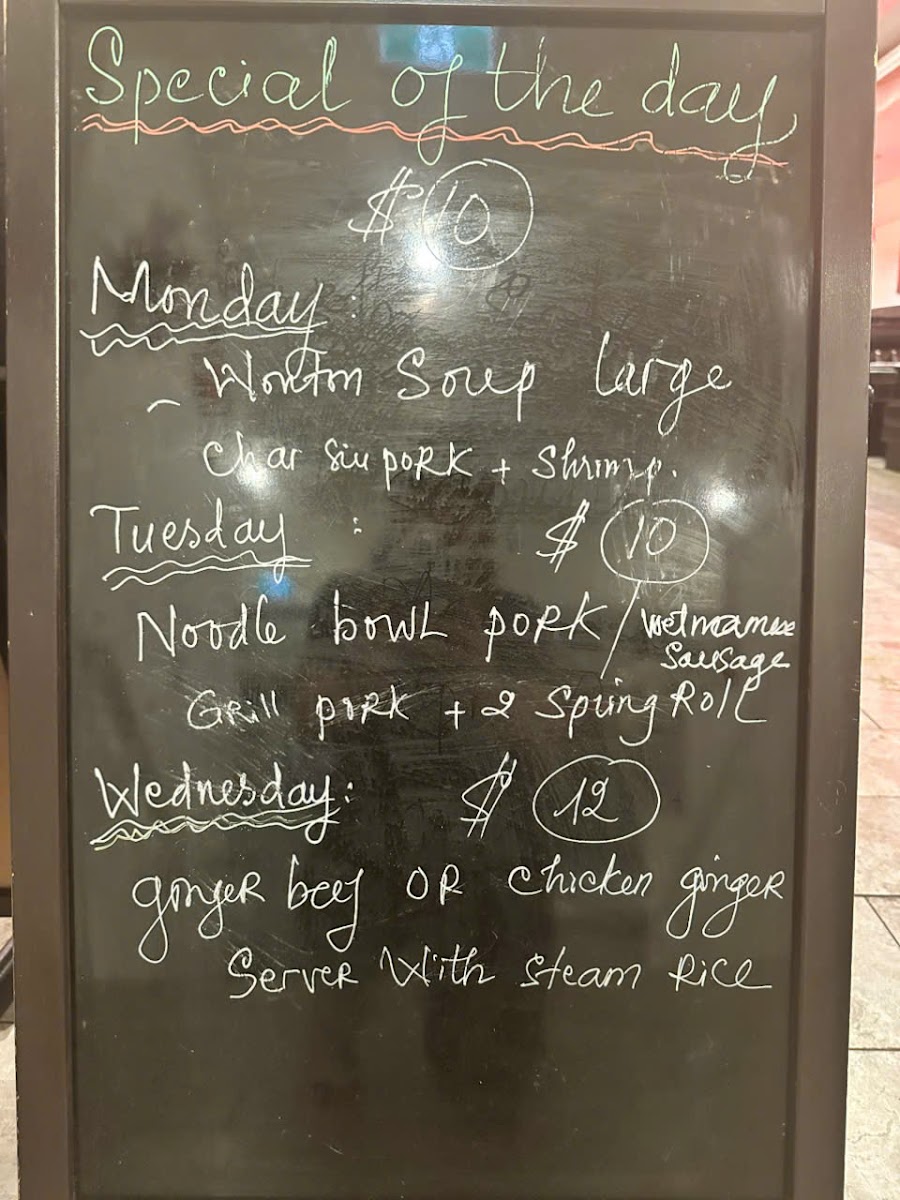 Special of the day
$ 10
Monday:
- Wonton Soup large
Char Siu poRK + Shrimp.
Tuesday : $ 10
Noodle bowL poRK / Vietnamese
Sausage
GRill poRK + 2 Spring Roll
Wednesday: $ 12
gingeR beef OR chicken gingeR
SerVeR With steam Rice